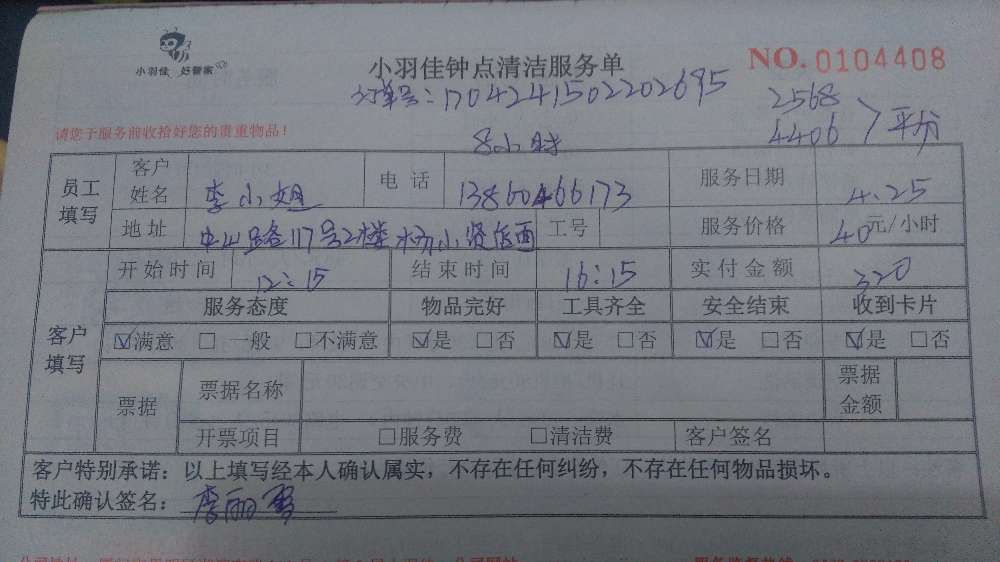 小羽佳 好管家
小羽佳钟点清洁服务单
NO.0104408
订单号:1704241502202695
2568
4406 平分
请您于服务前收拾好您的贵重物品!
8小时
员工填写 客户姓名 李小姐 电话 13860466173 服务日期 4.25
地址 中山路117号2楼 小贤店面 工号 服务价格 40元/小时
客户填写 开始时间 12:15 结束时间 16:15 实付金额 320
服务态度 物品完好 工具齐全 安全结束 收到卡片
☑满意 □一般 □不满意 ☑是 □否 ☑是 □否 ☑是 □否 ☑是 □否
票据 票据名称 票据金额
开票项目 □服务费 □清洁费 客户签名
客户特别承诺:以上填写经本人确认属实,不存在任何纠纷,不存在任何物品损坏。
特此确认签名:李丽雪